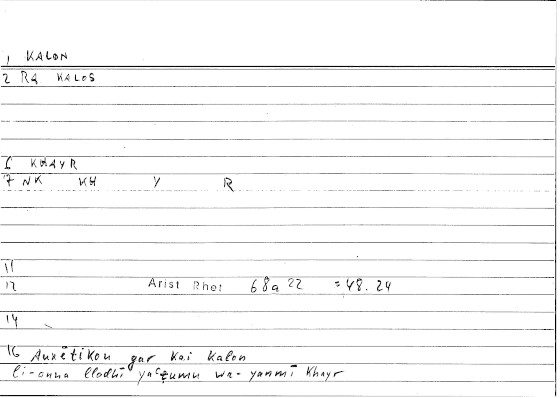 1 KALON
2 RA KALOS
6 KHAYR
7 NK KH Y R
11
12 Arist Rhet 68a 22 =48.24
14
16 Auxêtikon gar kai kalon
li-anna lladhī yaʿẓumu wa-yanmī khayr